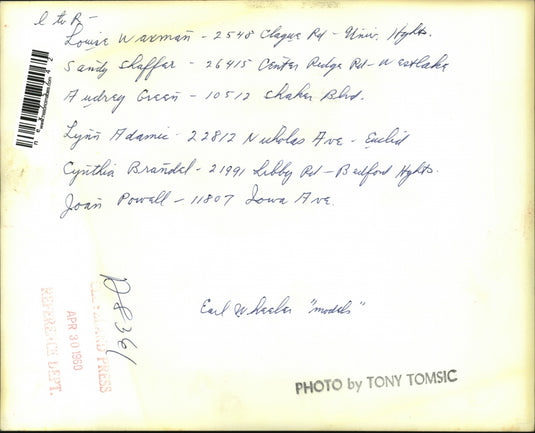 L to R -
Louise Waxman - 2548 Clague Rd - Univ. Hghts.
Sandy Shaffer - 26415 Center Ridge Rd - Westlake
Audrey Green - 10512 Shaker Blvd.
Lynn Adamic - 22812 Nicholas Ave - Euclid
Cynthia Brandel - 21991 Libby Rd - Bedford Hghts.
Joan Powell - 11807 Iowa Ave.
Earl Wheeler "models"
D8361
PRESS
APR 30 1980
REFERENCE DEPT.
PHOTO by TONY TOMSIC